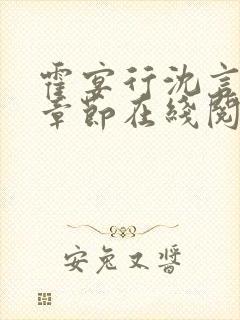 霍宴行沈言
章节在线阅
安兔又酱